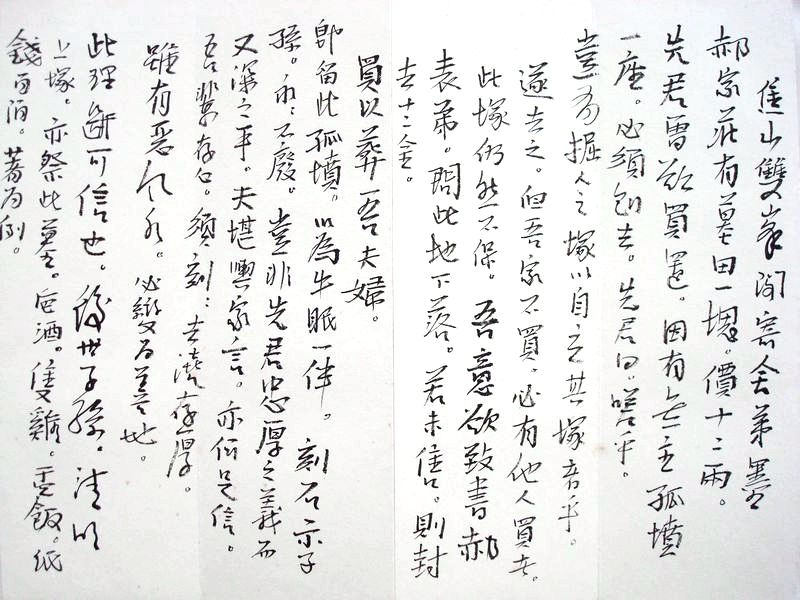 焦山雙峯閣寄舍弟墨
郝家莊有墓田一塊。價十二兩。
先君曾欲買置。因有无主孤墳
一座。必須刨去。先君曰。嗟乎。
豈有掘人之塚以自立其塚者乎。
遂去之。但吾家不買。必有他人買者。
此塚仍然不保。吾意欲致書郝
表弟。問此地下落。若未售。則封
去十二金。
買以葬吾夫婦。
即留此孤墳。以為牛眠一伴。刻石示子
孫。永〻不廢。豈非先君忠厚之義而
又深之乎。夫堪輿家言。亦何足信。
吾輩存心。須刻〻去澆存厚。
雖有惡风水。必變為善地。
此理斷可信也。後世子孫。清明
上塚。亦祭此墓。卮酒。隻雞。盂飯。紙
錢百陌。著為例。